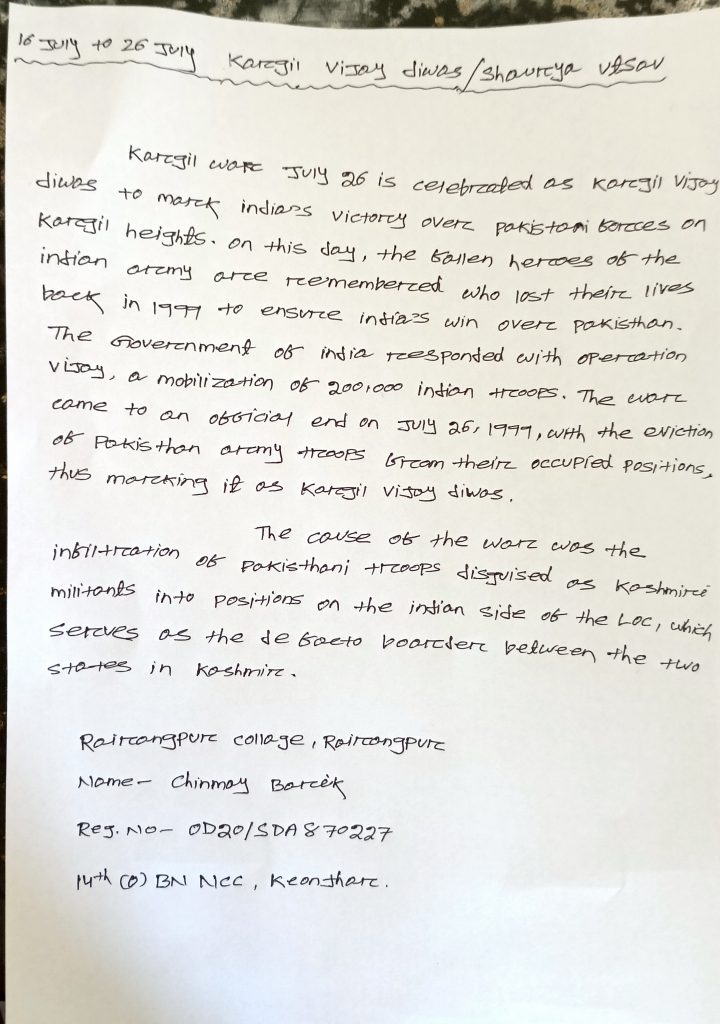 16 July to 26 July Kargil Vijay diwas/Shaurya utsav
Kargil war July 26 is celebrated as Kargil Vijay
diwas to mark india's victory over pakistani forces on
Kargil heights. on this day, the fallen heroes of the
indian army are remembered who lost their lives
back in 1999 to ensure india's win over pakisthan.
The Government of india responded with operation
vijay, a mobilization of 200,000 indian troops. The war
came to an official end on July 26, 1999, with the eviction
of Pakisthan army troops from their occupied positions,
thus marking it as Kargil vijay diwas.
The cause of the war was the
infiltration of Pakisthani troops disguised as Kashmiri
militants into positions on the indian side of the LOC, which
serves as the de facto boarder between the two
states in Kashmir.
Rairangpur collage, Rairangpur
Name- Chinmay Barik
Reg. No- OD20/SDA870227
14th (O) BN NCC, Keonjhar.